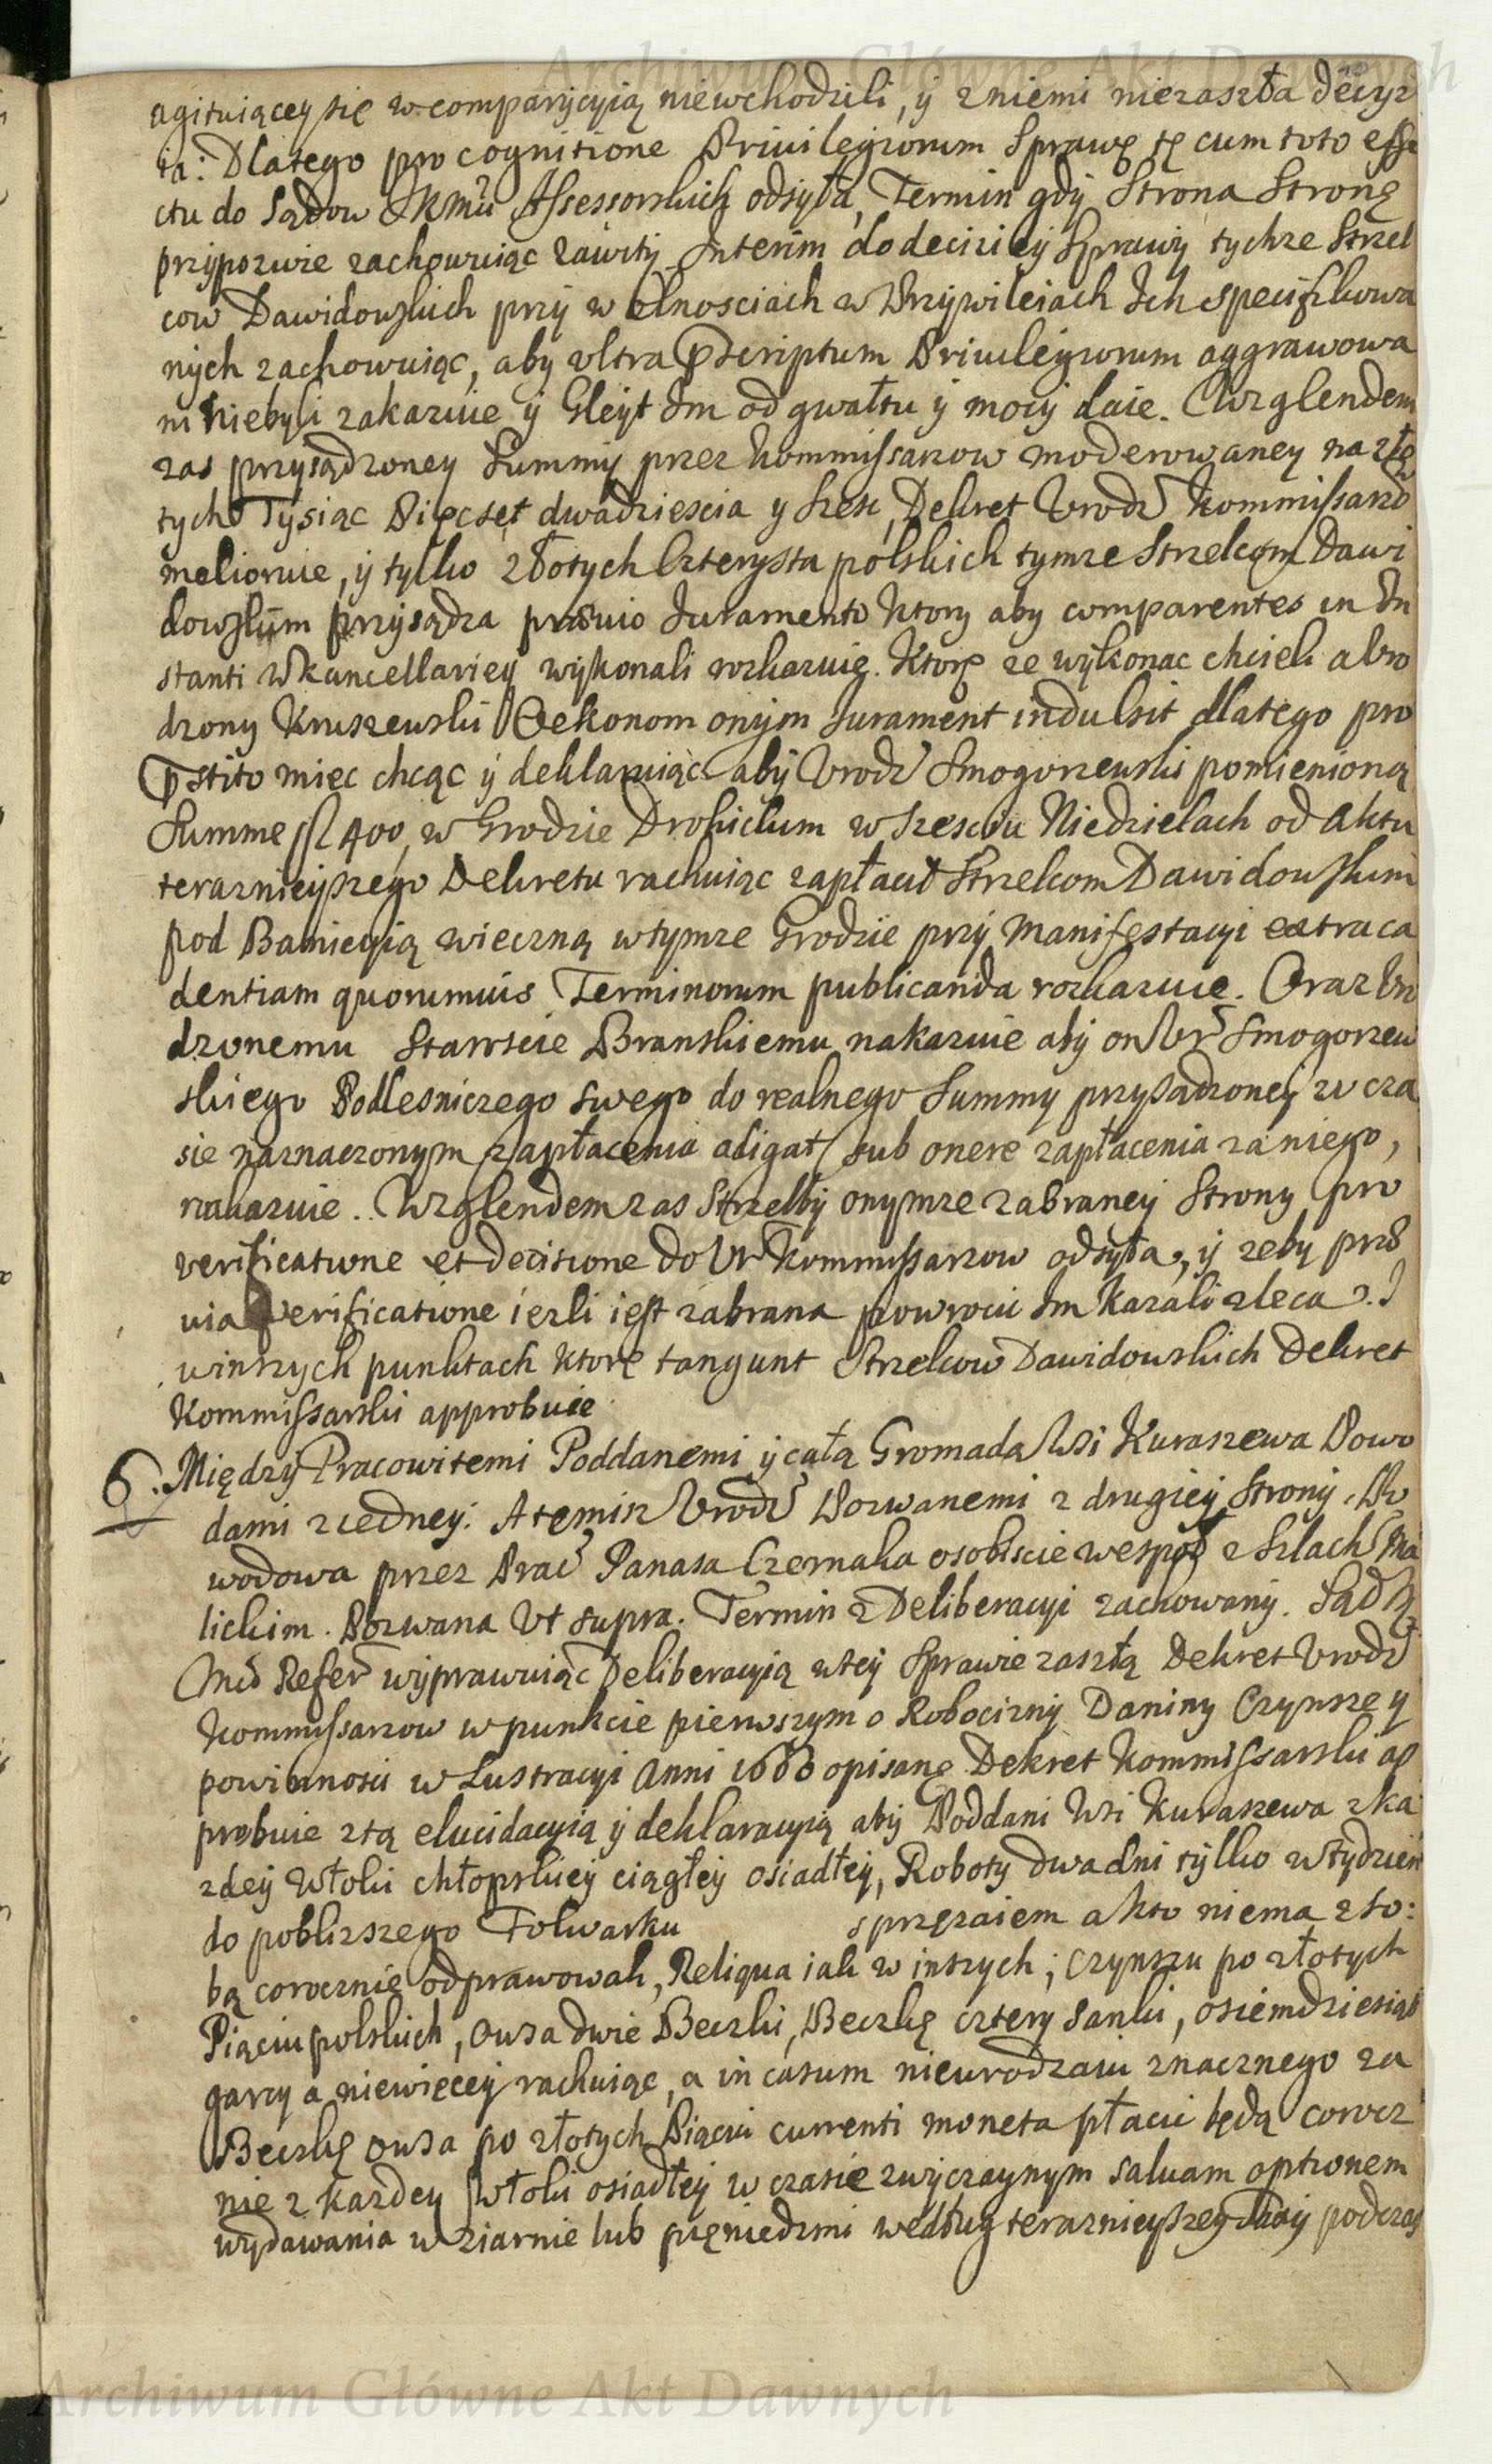 agituiącey się w comparycyią niewchodzili, y z niemi niezaszła decyz
ia: Dlatego pro cognitione Priuilegiorum Sprawę tę cum toto effe
ctu do Sądow JKmci Assessorskich odsyła, Termin gdy Strona Stronę
przypozwie zachowuiąc zawity. Interim do decizij ey Sprawy tychze Strzel
cow Dawidowskich przy wolnosciach w Przywileiach Ich specifikowa
nych zachowuiąc, aby vltra pscriptum Priuilegiorum aggrawowa
ni niebyli zakazuie y Gleyt Im od gwałtu y mocy daie. Wzglendem
zas przysądzoney Summy przez Kommissarzow moderowaney na zło
tych Tysiąc Pięcset dwadziescia y szesc, Dekret Vrodz Kommissarzow
melioruie, y tylko złotych Czterysta polskich tymze Strzelcom Dawi
dowskim przysądza prævio Iuramento ktory aby comparentes in In
stanti w Kancellariey wykonali rozkazuie. Ktorę ze wykonac chcieli a Vro
dzony Kruszewski Oekonom onym Iurament indulsit dlatego pro
pstito miec chcąc y deklaruiąc aby Vrodz Smogorzewski pomienioną
Summę fl 400, w Grodzie Drohickim w szesciu Niedzielach od aktu
teraznieyszego Dekretu rachuiąc zapłacił Strzelcom Dawidowskim
pod Banicyią wieczną w tymze Grodzie przy Manifestacyi extra ca
dentiam quorumuis Terminorum publicanda rozkazuie. Oraz Vro
dzonemu Staroscie Branskiemu nakazuie aby on Vr Smogorzew
skiego Podlesniczego swego do realnego Summy przysądzoney w cza
sie naznaczonym zapłacenia adigat sub onere zapłacenia za niego,
nakazuie. Wzglendem zas Strzelby onymze zabraney Strony pro
verificatione et decisione do Vr Kommissarzow odsyła, y zeby præ
uia verificatione iezli iest zabrana powrocic Im kazali zleca. I
w inszych punktach ktorę tangunt Strzelcow Dawidowskich Dekret
Kommissarski approbuie
6. Między Pracowitemi Poddanemi y całą Gromadą Wsi Kuraszewa Powo
dami z iedney. A temisz Vrodz Pozwanemi z drugiey Strony. Po
wodowa przez Prac Panasa Czernaka osobiscie wespoł z Szlach Ma
lickim. Pozwana Vt supra. Termin z Deliberacyi zachowany. Sąd
Refer wyprawuiąc Deliberacyią w tey Sprawie zaszłą Dekret Vrodz
Kommissarzow w punkcie pierwszym o Robocizny Daniny Czynsze y
powinnosci w Lustracyi Anni opisanę Dekret Kommissarski ap
probuie z tą elucidacyią y deklaracyią aby Poddani Wsi Kuraszewa z ka
zdey włoki chłopskiey ciągłey osiadłey, Roboty dwa dni tylko w tydzien
do poblizszego Folwarku sprzęzaiem a kto niema z so:
bą corocznie odprawowali, Reliqua iak w inszych; Czynszu po złotych
Piąciu polskich, owsa dwie Beczki, Beczkę cztery sanki, osiemdziesiąt
garcy a niewięcey rachuiąc, a in casum nieurodzaiu znacznego za
Beczkę owsa po złotych Piąciu currenti moneta płacic będą corocz
nie z kazdey włoki osiadłey w czasie zwyczaynym saluam optionem
wydawania w ziarnie lub pięniedzmi według teraznieyszey podczas